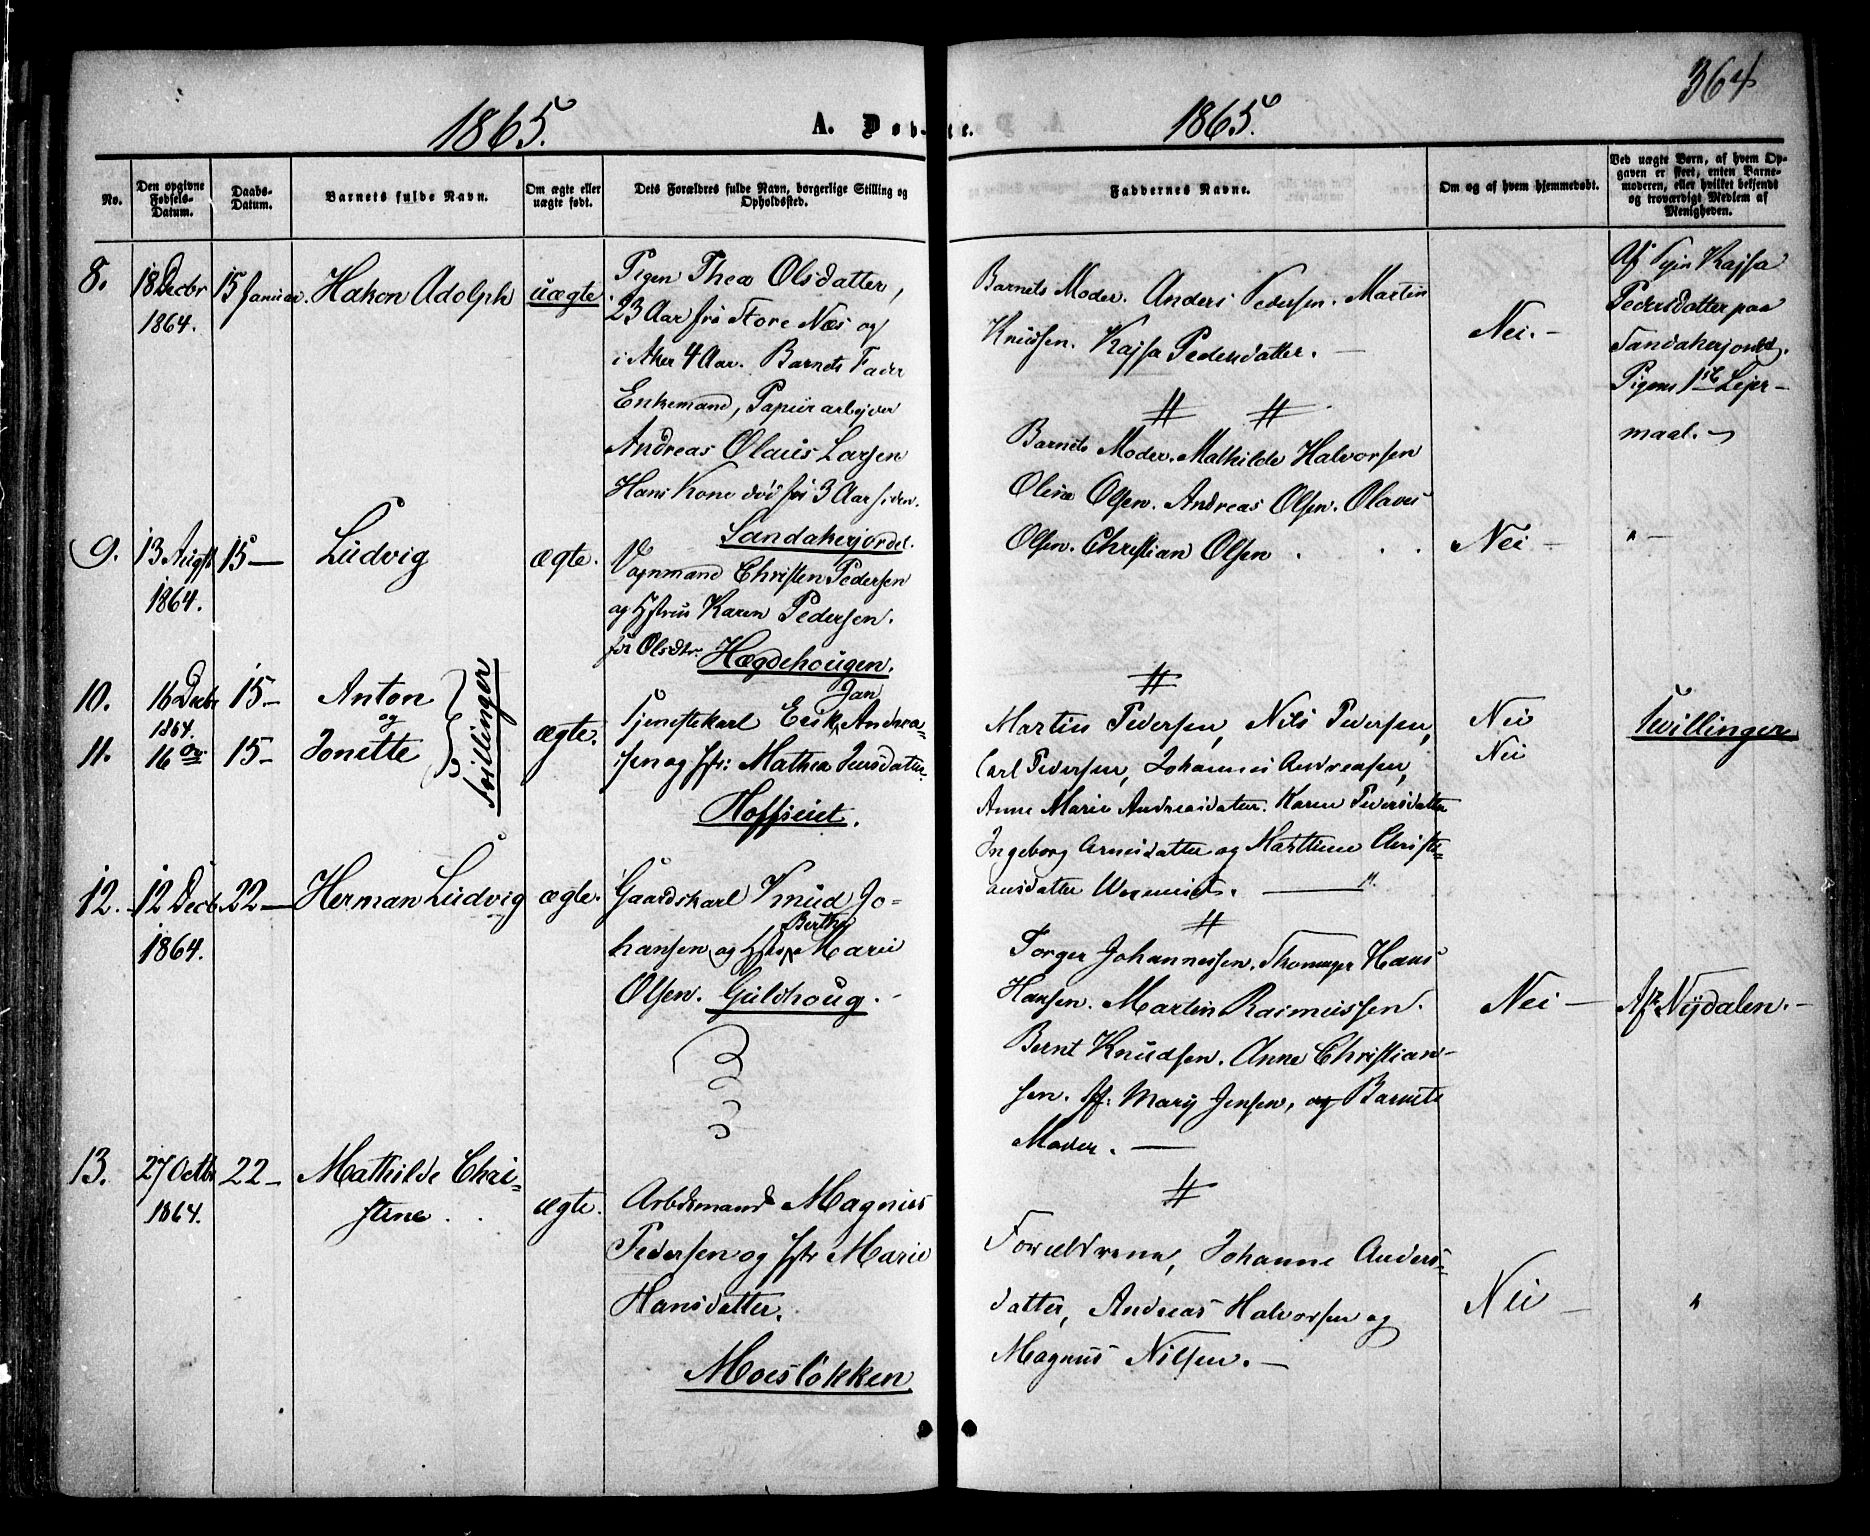 364
1865.
A. Døb-
te.
1865.
No.
Den opgivne Fødsels-Datum.
Daabs-Datum.
Barnets fulde Navn.
Om ægte eller uægte født.
Dets Forældres fulde Navn, borgerlige Stilling og Opholdssted.
Faddernes Navne.
Om og af hvem hjemmedøbt.
Ved uægte Børn, af hvem Op-
gaven er skeet, enten Barne-
moderen, eller hvilket bekjendt
og troværdigt Medlem af
Menigheden.
8.
18 Decbr
1864.
15 Januar.
Hakon Adolph
uægte
Pigen Thea Olsdatter,
23 Aar fra Store Næs og
i Aker 4 Aar. Barnets Fader
Enkemand, Papirarbejder
Andreas Olaus Larsen
Hans Kone død for 3 Aar siden.
Sandakerjordet.
Barnets Moder. Anders Pedersen. Martin
Knudsen. Kajsa Pedersdatter. —
Nei. —
Af Kajsa
Pedersdatter paa
Sandakerjordet.
Pigens 1ste Lejer-
maal. —
9.
13 Augst
1864.
15 —
Ludvig
ægte.
Vognmand Christen Pedersen
og Hstru Karen Pedersen.
før Olsdtr. Hægdehougen.
# #
Barnets Moder. Mathilde Halvorsen
Oline Olsen. Andreas Olsen. Olaves
Olsen. Christian Olsen
Nei —
" —
10.
16 Decbr
1864.
15 —
Anton
og
11.
16 Do
15 —
Jonette
Tvillinger
ægte.
Jan
Tjenestekarl Erik Andrea-
sen og Hstr: Mathea Jensdatter.
Hoffsiet.
#
Martin Pedersen, Nils Pedersen,
Carl Pedersen, Johannes Andreasen,
Anne Marie Andreasdatter. Karen Pedersdatter
Ingeborg Arnesdatter og Marthine Christi-
ansdatter. — "
Nei
Nei
Tvillinger
12.
12 Decb.
1864.
22 —
Herman Ludvig
ægte.
Gaardskarl Knud Jo-
Berthe
hansen og Hstr Marie
Olsen. Guldhoug. —
#
Torger Johannessen. Hans
Hansen. Martin Rasmussen.
Bernt Knudsen. Anne Christian-
sen. Mary Jensen, og Barnets
Moder. —
Nei —
Af Nydalen. —
13.
27 Octbr
1864.
22 —
Mathilde Chri-
stine.
ægte.
Arbdsmand Magnus
Pedersen og Hstr Marie
Hansdatter.
Moesløkken
#
Forældrene, Johanne Anders-
datter, Andreas Halvorsen og
Magnus Nilsen. —
Nei —
"